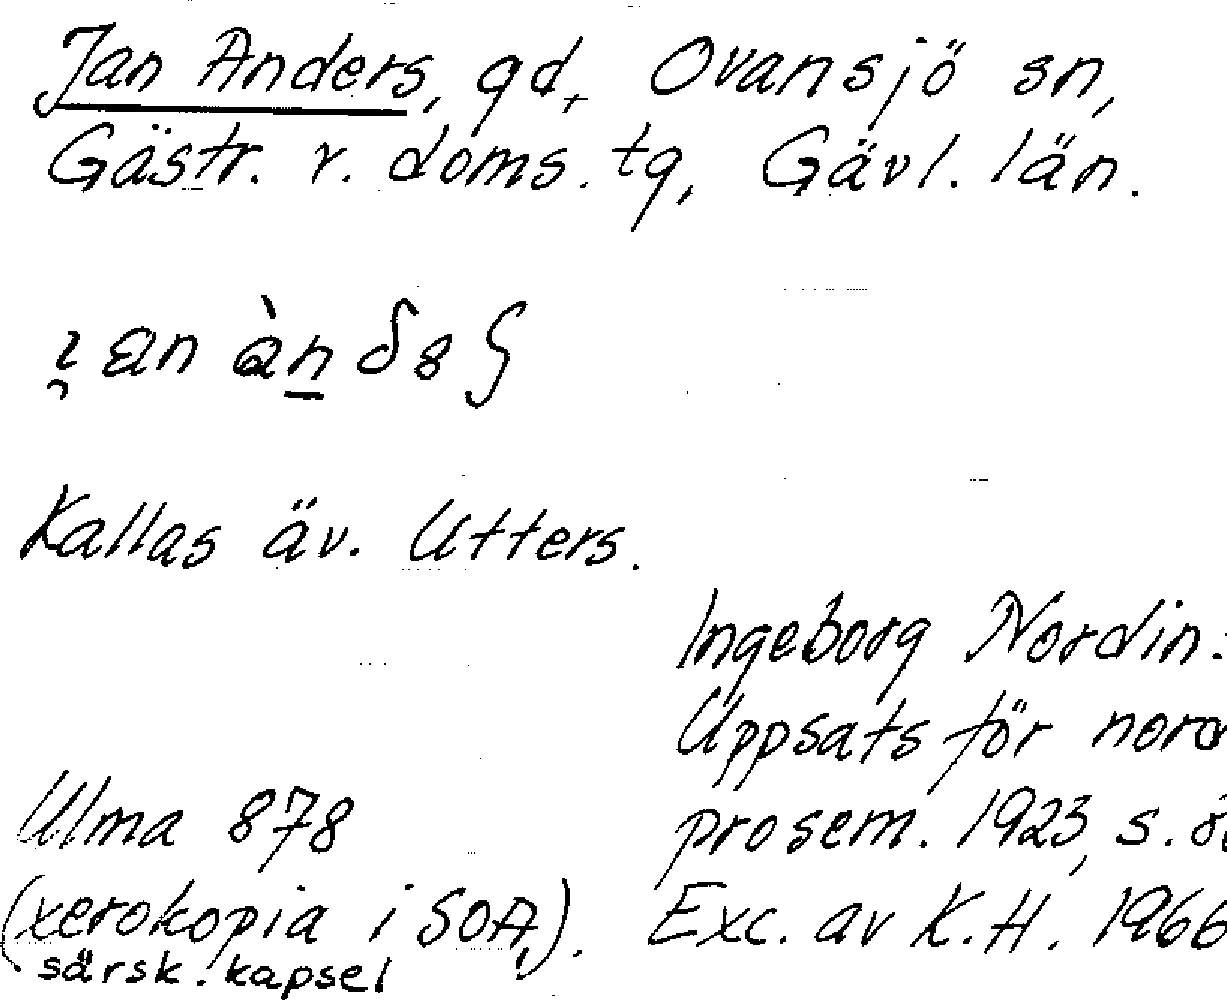 Jan Anders, gd, Ovansjö sn,
Gästr. v. doms. tg, Gävl. län.
Kallas äv. Utters.
Ingeborg Nordin:
Uppsats för nord
prosem. 1923, s.
Ulma 878
(xerokopia i SOA,).
särsk. kapsel
Exc. av K.H. 1966